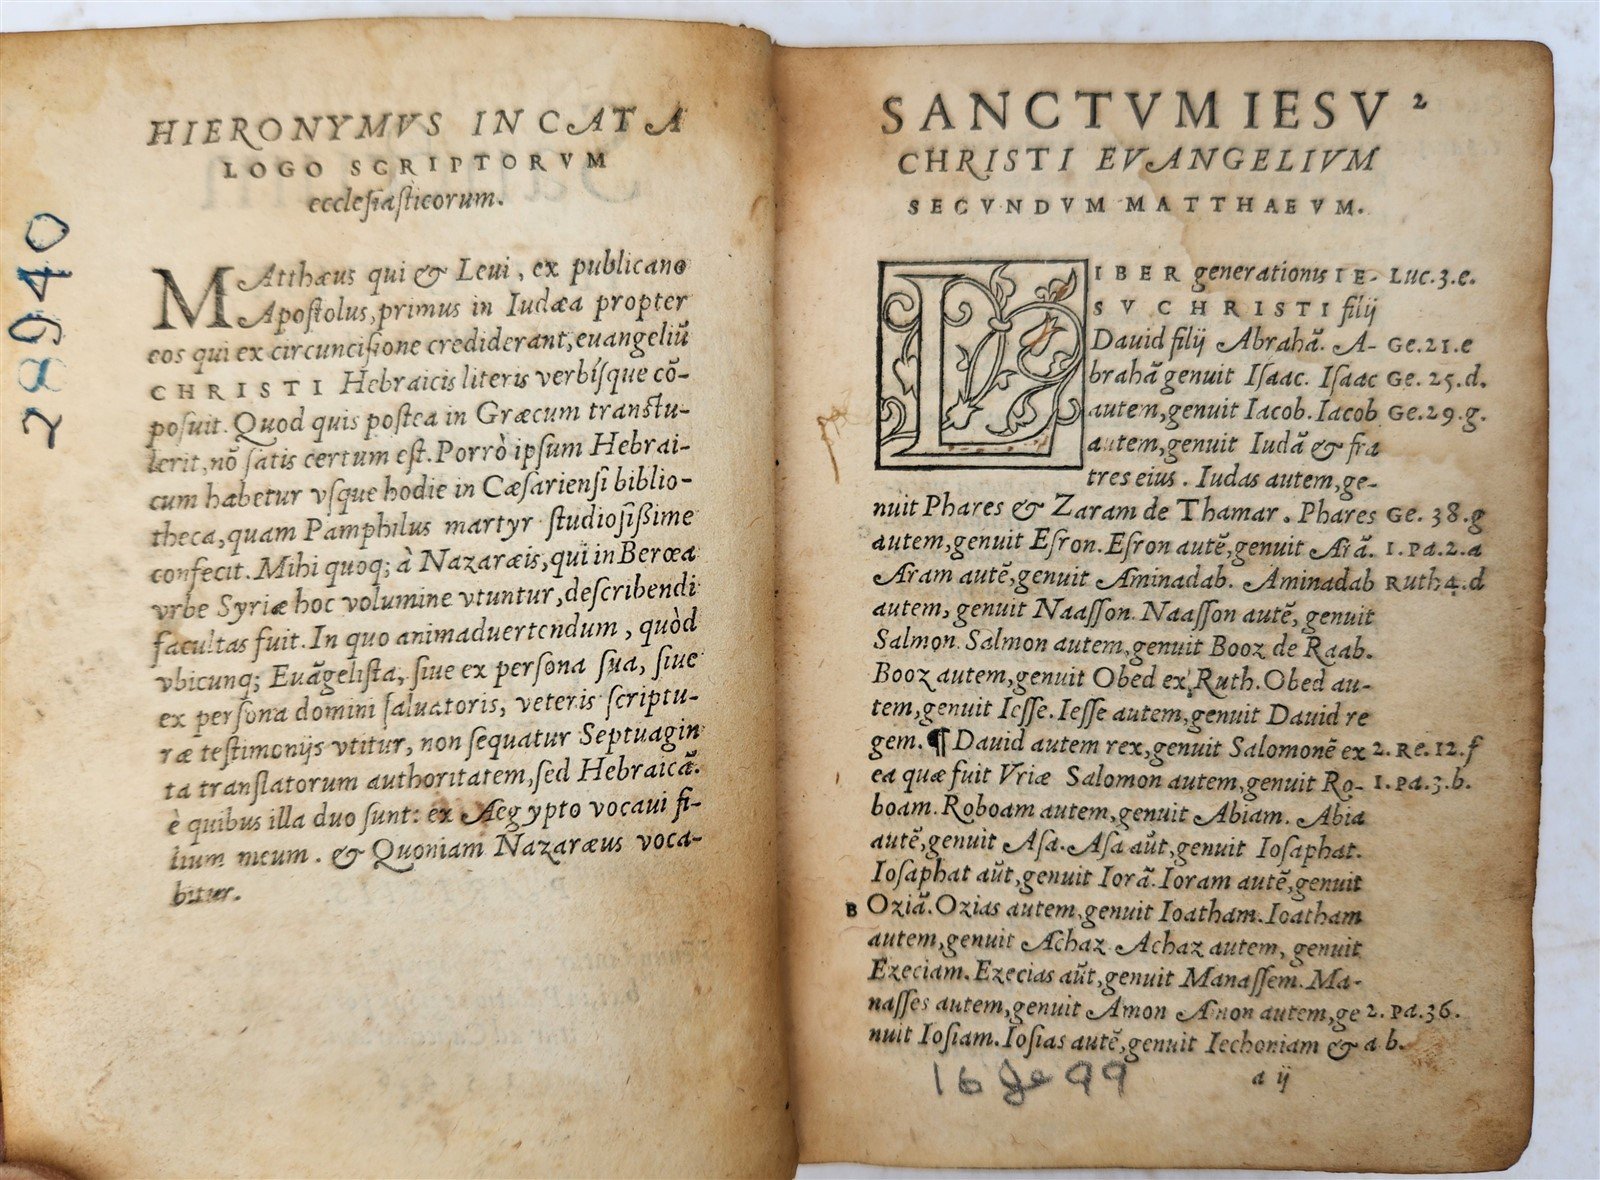 28940
HIERONYMVS IN CATA
LOGO SCRIPTORVM
ecclesiasticorum.
MAtthæus qui & Leui, ex publicano
Apostolus, primus in Iudæa propter
eos qui ex circuncisione crediderant, euangeliũ
CHRISTI Hebraicis literis verbísque cõ-
posuit. Quod quis postea in Græcum transtu-
lerit, nõ satis certum est. Porrò ipsum Hebrai-
cum habetur vsque hodie in Cæsariensi biblio-
theca, quam Pamphilus martyr studiosißime
confecit. Mihi quoq; à Nazaræis, qui in Berœa
vrbe Syriæ hoc volumine vtuntur, describendi
facultas fuit. In quo animaduertendum, quòd
vbicunq; Euãgelista, siue ex persona sua, siue
ex persona domini saluatoris, veteris scriptu-
ræ testimonijs vtitur, non sequatur Septuagin
ta translatorum authoritatem, sed Hebraicã.
è quibus illa duo sunt: ex Aegypto vocaui fi-
lium meum. & Quoniam Nazaræus voca-
bitur.
SANCTVM IESV 2
CHRISTI EVANGELIVM
SECVNDVM MATTHAEVM.
LIBER generationis IE- Luc.3.e.
SV CHRISTI filij
Dauid filij Abrahã. A- Ge.21.e
brahã genuit Isaac. Isaac Ge.25.d.
autem, genuit Iacob. Iacob Ge.29.g.
autem, genuit Iudã & fra
tres eius. Iudas autem, ge-
nuit Phares & Zaram de Thamar. Phares Ge.38.g
autem, genuit Esron. Esron autẽ, genuit Arã. 1.Pa.2.a
Aram autẽ, genuit Aminadab. Aminadab Ruth4.d
autem, genuit Naasson. Naasson autẽ, genuit
Salmon. Salmon autem, genuit Booz de Raab.
Booz autem, genuit Obed ex Ruth. Obed au-
tem, genuit Iesse. Iesse autem, genuit Dauid re
gem. ¶ Dauid autem rex, genuit Salomonẽ ex 2.Re.12.f
ea quæ fuit Vriæ Salomon autem, genuit Ro- 1.Pa.3.b.
boam. Roboam autem, genuit Abiam. Abia
autẽ, genuit Asa. Asa aũt, genuit Iosaphat.
Iosaphat aũt, genuit Iorã. Ioram autẽ, genuit
B Oziã. Ozias autem, genuit Ioatham. Ioatham
autem, genuit Achaz. Achaz autem, genuit
Ezeciam. Ezecias aũt, genuit Manassem. Ma-
nasses autem, genuit Amon Amon autem, ge 2.Pa.36.
nuit Iosiam. Iosias autẽ, genuit Iechoniam & a b.
a ij
16 Je 99